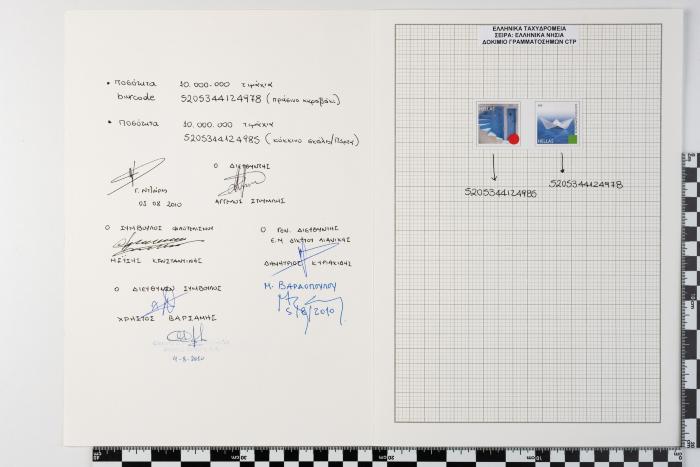 • Ποσότητα 10.000.000 τεμάχια
barcode 5205344124978 (πράσινο καραβάκι)
• Ποσότητα 10.000.000 τεμάχια
5205344124985 (κόκκινο σκάλα/Πάρου)
Ο ΔΙΕΥΘΥΝΤΗΣ
03 08 2010
Ο ΣΥΜΒΟΥΛΟΣ ΦΙΛΟΤΕΛΙΣΜΟΥ
Ο ΓΕΝ. ΔΙΕΥΘΥΝΤΗΣ
Ε.Μ ΔΙΚΤΥΟΥ ΛΙΑΝΙΚΗΣ
ΔΗΜΗΤΡΙΟΣ ΚΥΡΙΑΚΙΔΗΣ
Ο ΔΙΕΥΘΥΝΩΝ ΣΥΜΒΟΥΛΟΣ
Μ. ΒΑΡΔΟΠΟΥΛΟΥ
5/8/2010
ΧΡΗΣΤΟΣ ΒΑΡΣΑΜΗΣ
4-8-2010
ΕΛΛΗΝΙΚΑ ΤΑΧΥΔΡΟΜΕΙΑ
ΣΕΙΡΑ: ΕΛΛΗΝΙΚΑ ΝΗΣΙΑ
ΔΟΚΙΜΙΟ ΓΡΑΜΜΑΤΟΣΗΜΩΝ CTP
HELLAS
HELLAS
5205344124985
5205344124978